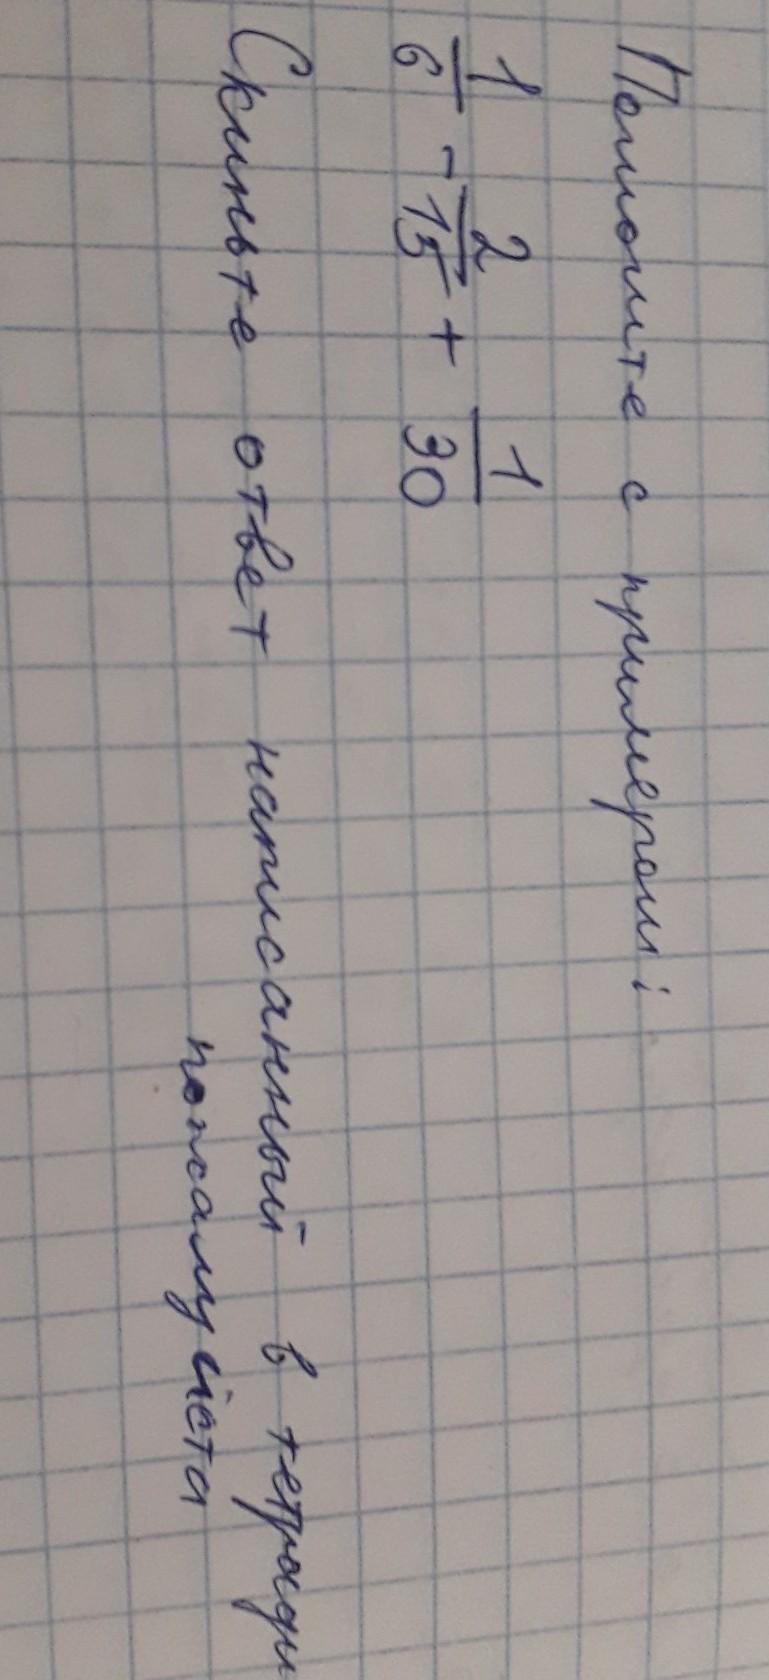 Помогите с примером:
1/6 - 2/15 + 1/30
Скиньте ответ написанный в тетради
пожалуйста